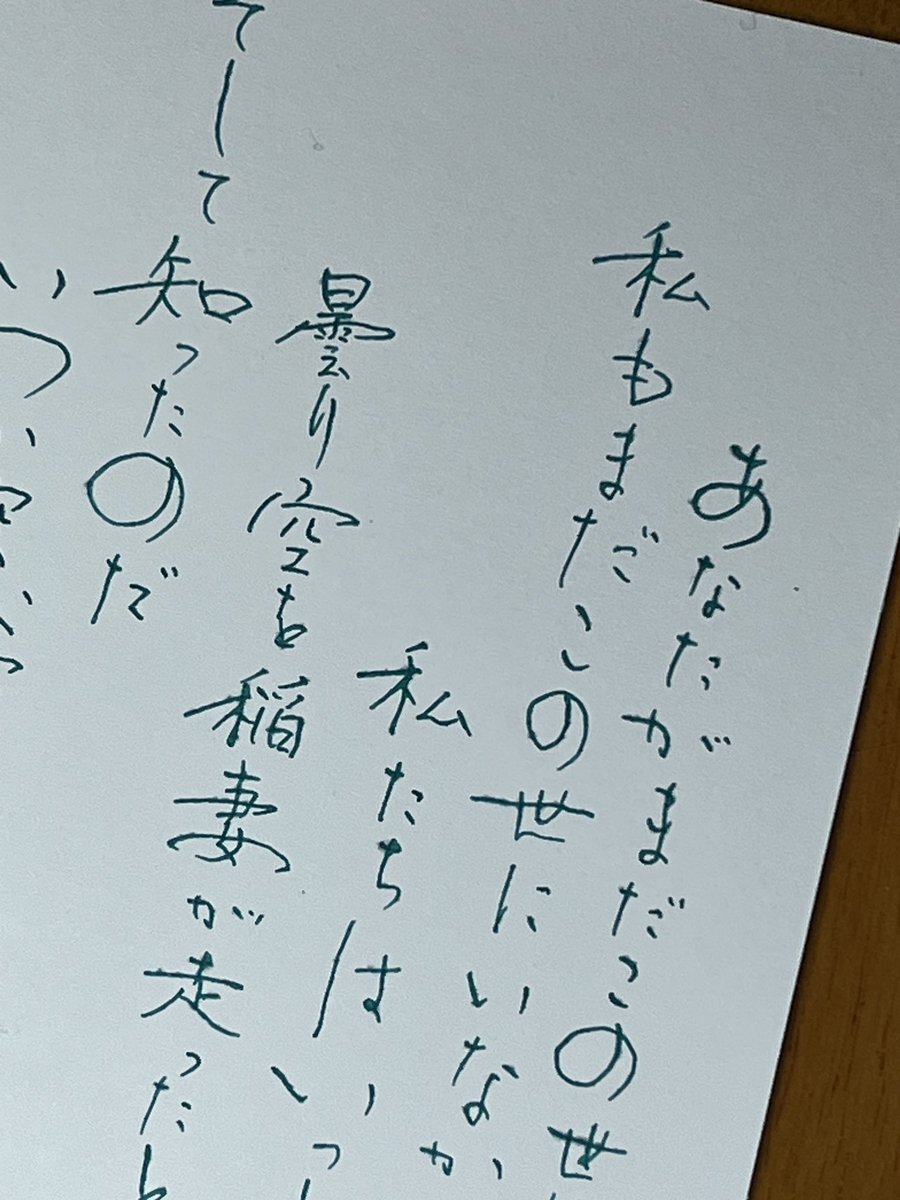 あなたがまだこの世
私もまだこの世にいなか
私たちはいっ
曇り空を稲妻が走った
てして知ったのだ